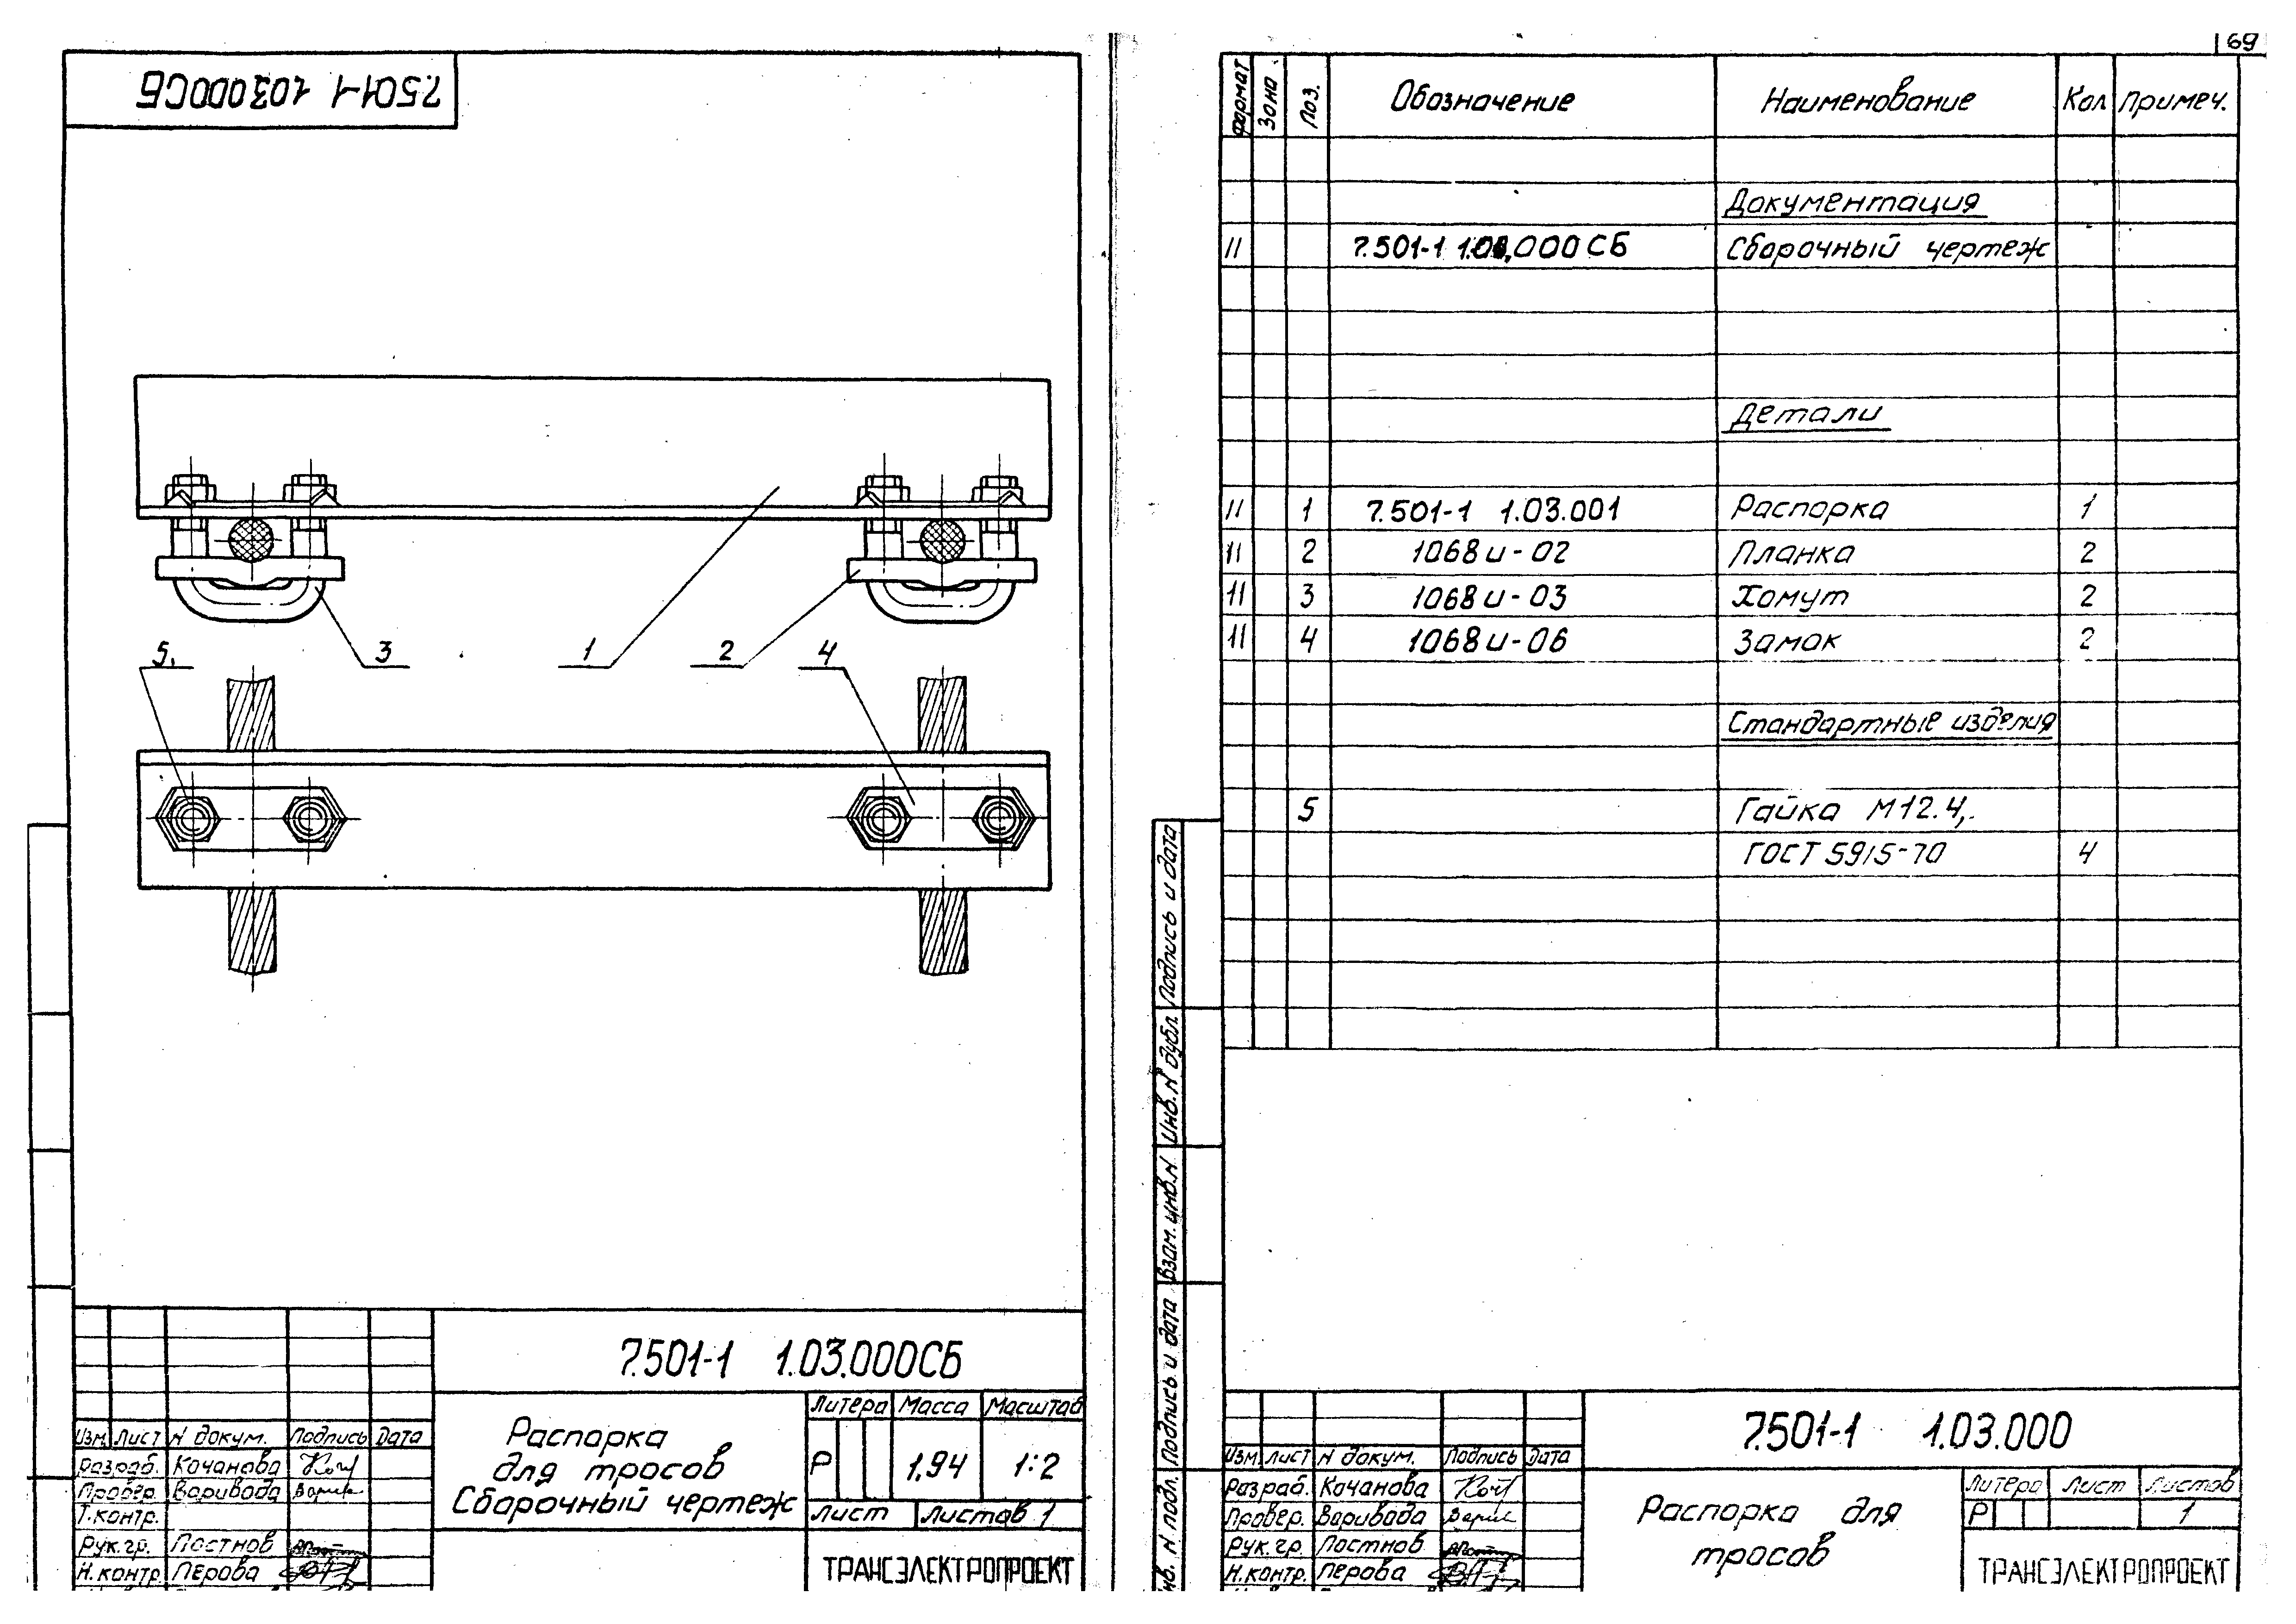 7.501-1 1.03.000СБ
5.
3
1
2
4
7.501-1 1.03.000СБ
Распорка
для тросов
Сборочный чертеж
Литера Масса Масштаб
Р 1,94 1:2
Лист Листов 1
ТРАНСЭЛЕКТРОПРОЕКТ
Изм. Лист N докум. Подпись Дата
Разраб. Кочанова
Провер. Варивода
Т.контр.
Рук.гр. Постнов
Н.контр. Перова
69
Формат Зона Поз. Обозначение Наименование Кол Примеч.
Документация
11 7.501-1 1.03.000СБ Сборочный чертеж
Детали
11 1 7.501-1 1.03.001 Распорка 1
11 2 1068и-02 Планка 2
11 3 1068и-03 Хомут 2
11 4 1068и-06 Замок 2
Стандартные изделия
5 Гайка М12.4,
ГОСТ 5915-70 4
Подпись и дата
Инв. N дубл.
Взам. инв. N
Подпись и дата
Инв. N подл.
7.501-1 1.03.000
Изм Лист N докум. Подпись Дата
Разраб. Кочанова
Провер. Варивода
Рук.гр. Постнов
Н.контр. Перова
Распорка для
тросов
Литера Лист Листов
Р 1
ТРАНСЭЛЕКТРОПРОЕКТ